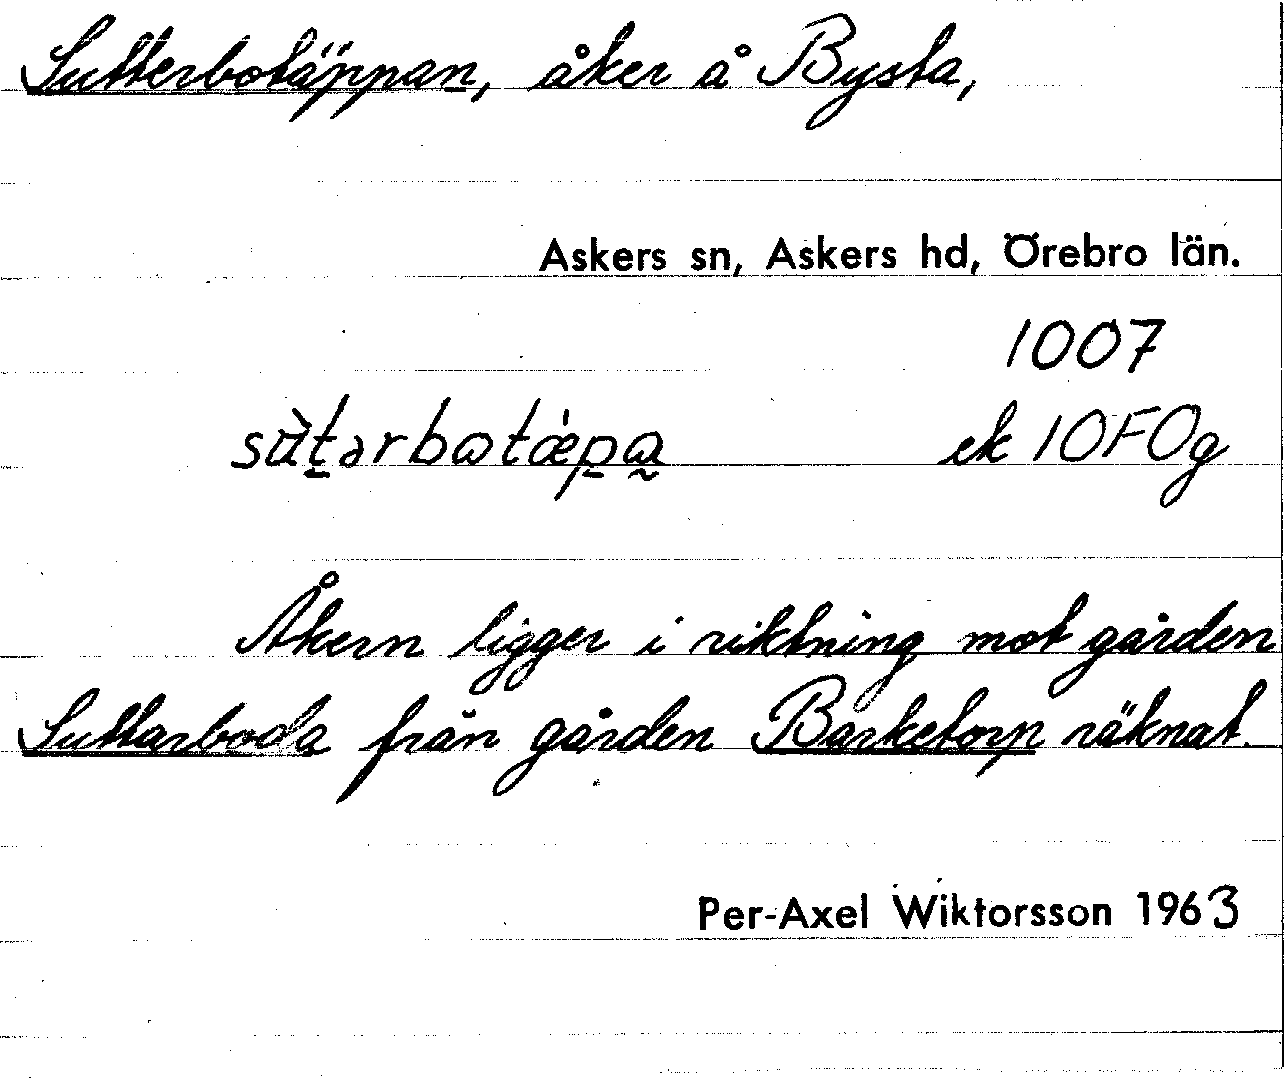 Sutterbotäppan, åker å Bysta,
Askers sn, Askers hd, Örebro län.
1007
sùt̠ərbωtǽp̠ω̰ ek 10F0g
Åkern ligger i riktning mot gården
Suttarboda från gården Barketorp räknat.
Per-Axel Wiktorsson 1963